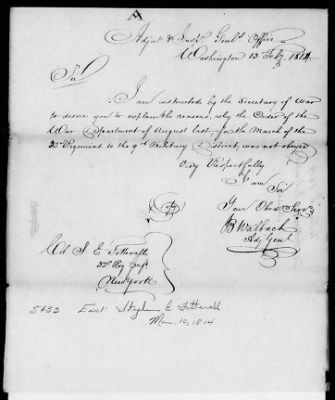 Adjt & Insp. Genl's Office
Washington 12 Feby. 1814.
Sir
I am instructed by the Secretary of War
to desire you to explain the reasons, why the Order of the
War Department of August last, for the March of the
32d Regiment to the 9th Military District, was not obeyed
Very Respectfully
I am Sir
Your Obed. Servt.
JB Walbach
Adj. Genl
(Copy)
Col S. E. Fotterall
32d Reg. Infy.
New York
5632 Encl. Stephen E Fotterall
Mar. 10, 1814